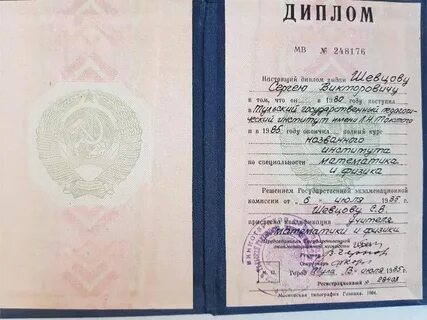 ДИПЛОМ
МВ № 248176
Настоящий диплом выдан Шевцову
Сергею Викторовичу
в том, что он в 1980 году поступил
в Тульский государственный педагог-
ический институт имени Л.Н. Толстого
и в 1985 году окончил полный курс
названного
института
по специальности математика
и физика
Решением Государственной экзаменационной
комиссии от 5 июля 1985 г.
Шевцову С.В.
присвоена квалификация учителя
математики и физики
Председатель Государственной
экзаменационной комиссии
Ректор
Секретарь
Город Тула июля 1985
Регистрационный №
Московская типография Гознака. 1984.